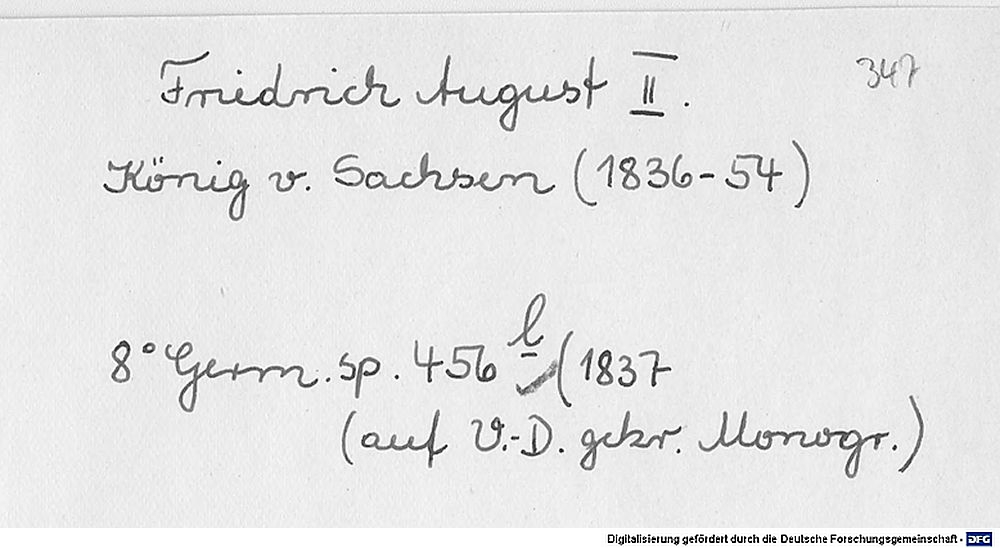 Friedrich August II. 347
König v. Sachsen (1836-54)
8° Germ. sp. 456 l (1837
(auf V.-D. gekr. Monogr.)
Digitalisierung gefördert durch die Deutsche Forschungsgemeinschaft - DFG